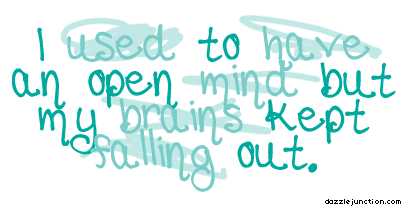 I used to have
an open mind but
my brains kept
falling out.
dazzlejunction.com